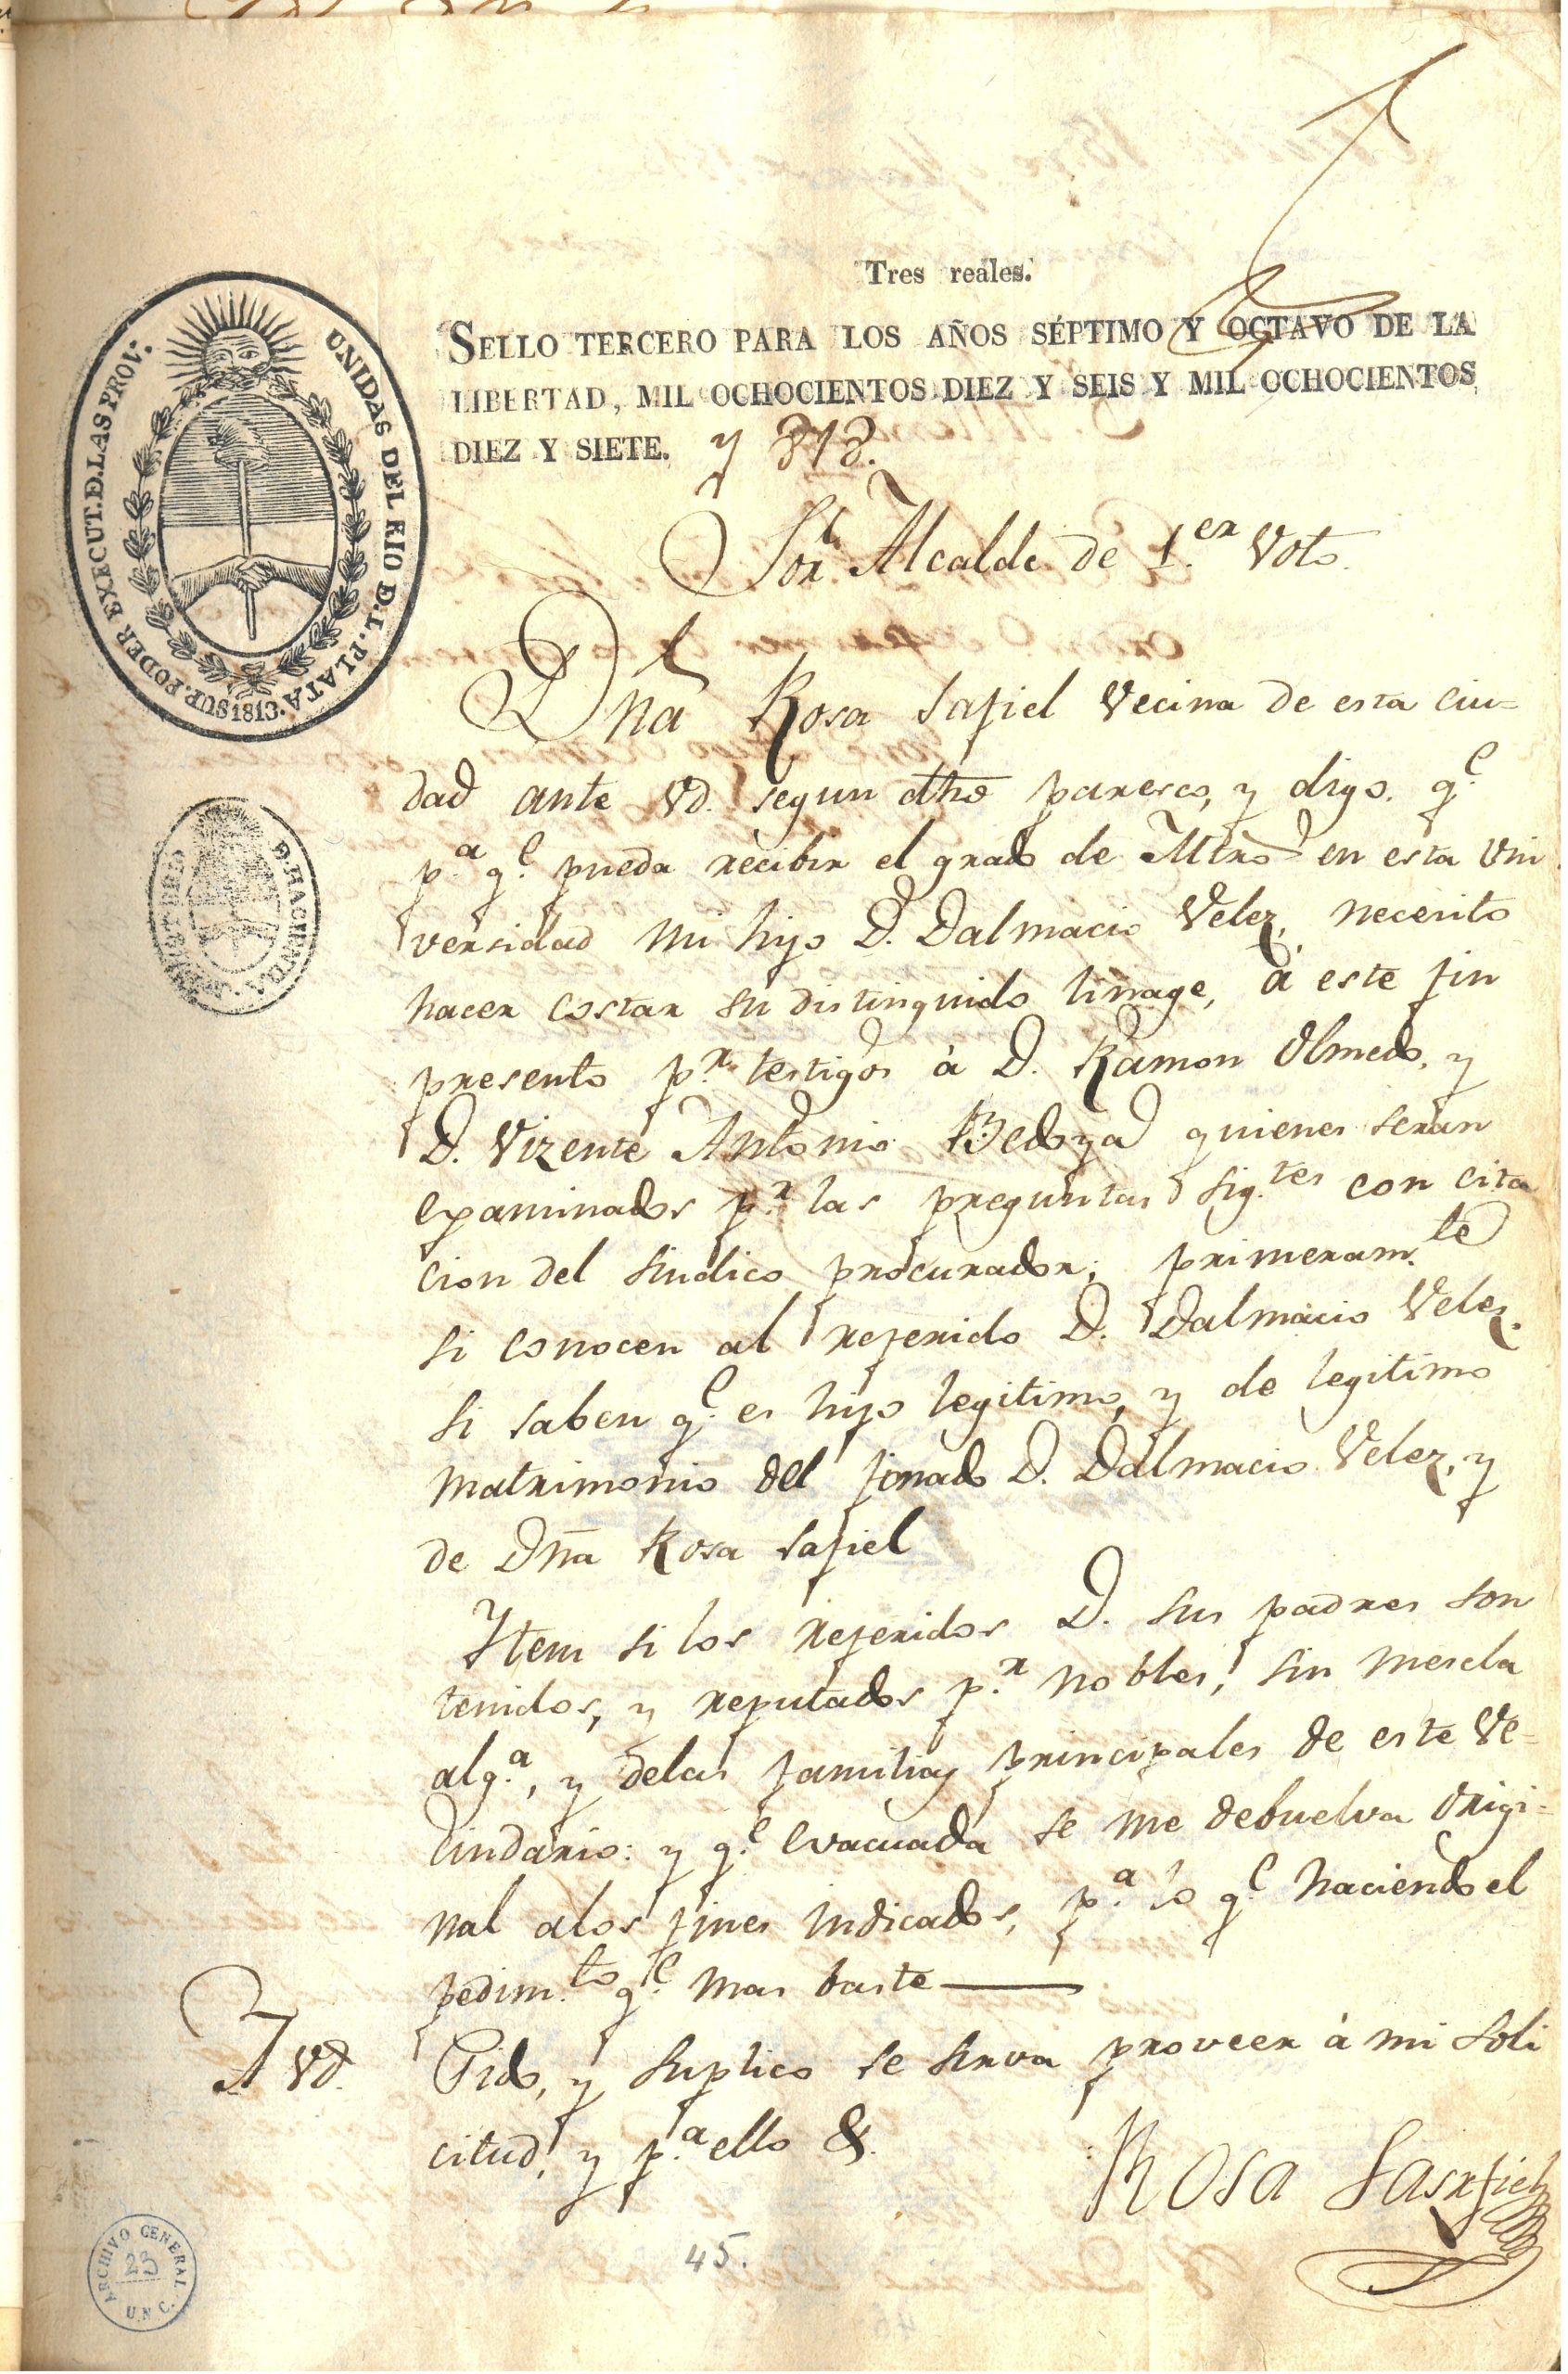 Tres reales.
SELLO TERCERO PARA LOS AÑOS SÉPTIMO Y OCTAVO DE LA
LIBERTAD, MIL OCHOCIENTOS DIEZ Y SEIS Y MIL OCHOCIENTOS
DIEZ Y SIETE. y 818.
SUP. PODER EXECUT. D. LAS PROV. UNIDAS DEL RIO D. L. PLATA 1813.
D. HACIENDA
Sor. Alcalde de 1.er Voto.
Dña Rosa Safiel vecina de esta ciu=
dad ante Vd. segun dho paresco, y digo. q.e
p.a q.e pueda recibir el grado de Mtro en esta Uni
versidad mi hijo D. Dalmacio Velez, necesito
hacer costar su distinguido linage, á este fin
presento p.r testigos à D. Ramon Olmedo, y
D. Vizente Antonio Bedoya quienes seran
examinados p.r las preguntas sig.tes con cita
cion del sindico procurador; primeram.te
si conocen al referido D. Dalmacio Velez.
si saben q.e es hijo legitimo, y de legitimo
matrimonio del finado D. Dalmacio Velez, y
de Dña Rosa Safiel
Ytem si los referidos D. sus padres son
tenidos, y reputados p.r nobles, sin mescla
alg.a, y delas familias principales de este Ve=
cindario: y q.e evacuada se me debuelva origi=
nal alos fines indicados, p.a lo q.e haciendo el
pedim.to q.e mas baste
A Vd. Pido, y suplico se sirva proveer à mi soli
citud, y p.a ello &.
Rosa Sarsfield
45.
ARCHIVO GENERAL
23
U.N.C.